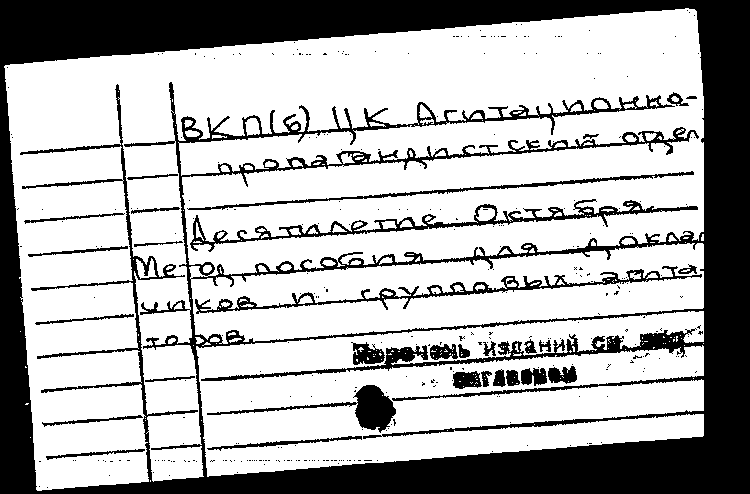 ВКП(б) ЦК Агитационно-
пропагандистский отдел.
Десятилетие Октября.
Метод. пособия для доклад
чиков и групповых агита-
торов.
Перечень изданий см. под
заглавием